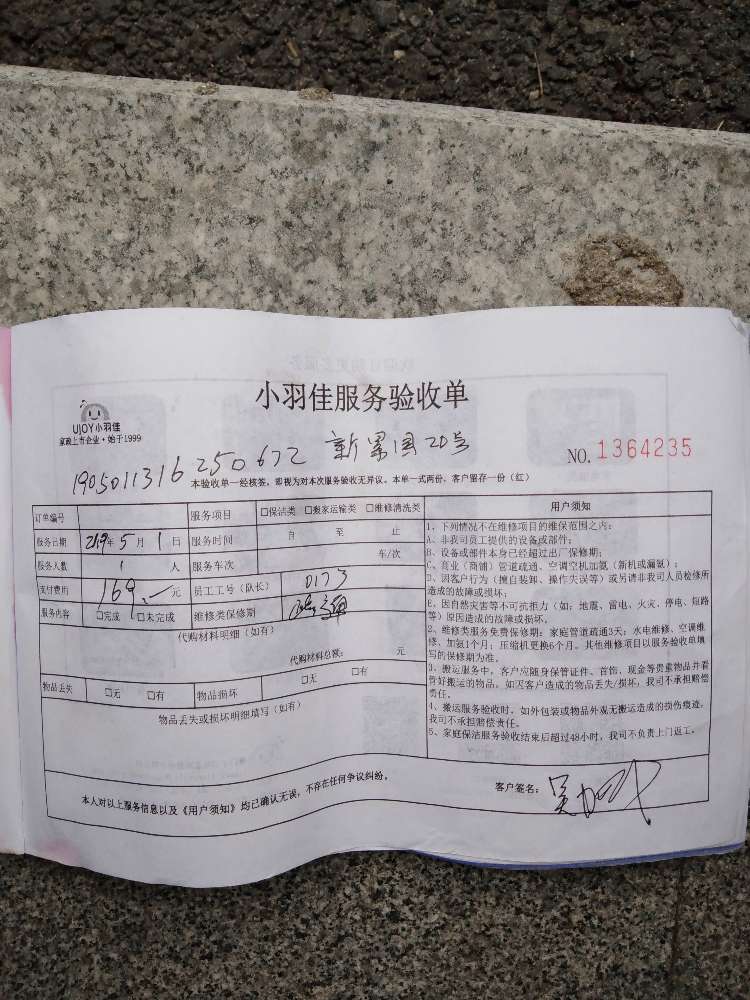 小羽佳服务验收单
UJOY小羽佳
家政上市企业·始于1999
190501131625067 2 新景园20号
NO.1364235
本验收单一经核签，即视为对本次服务验收无异议。本单一式两份，客户留存一份（红）
订单编号 服务项目 □保洁类 □搬家运输类 □维修清洗类
服务日期 2019年5月1日 服务时间 自 至 止
服务人数 1 人 服务车次 车/次
支付费用 169.- 元 员工工号（队长） 0173
服务内容 □完成 □未完成 维修类保修期
代购材料明细（如有）
代购材料总额： 元
物品丢失 □无 □有 物品损坏 □无 □有
物品丢失或损坏明细填写（如有）
用户须知
1、下列情况不在维修项目的维保范围之内：
A、非我司员工提供的设备或部件；
B、设备或部件本身已经超过出厂保修期；
C、商业（商铺）管道疏通、空调空机加氨（新机或漏氨）；
D、因客户行为（擅自装卸、操作失误等）或另请非我司人员检修所
造成的故障或损坏；
E、因自然灾害等不可抗拒力（如：地震、雷电、火灾、停电、短路
等）原因造成的故障或损坏。
2、维修类服务免费保修期：家庭管道疏通3天；水电维修、空调维
修、加氨1个月；压缩机更换6个月。其他维修项目以服务验收单填
写的保修期为准。
3、搬运服务中，客户应随身保管证件、首饰、现金等贵重物品并看
管好搬运的物品，如因客户造成的物品丢失/损坏，我司不承担赔偿
责任。
4、搬运服务验收时，如外包装或物品外观无搬运造成的损伤痕迹，
我司不承担赔偿责任。
5、家庭保洁服务验收结束后超过48小时，我司不负责上门返工。
本人对以上服务信息以及《用户须知》均已确认无误，不存在任何争议纠纷。
客户签名：